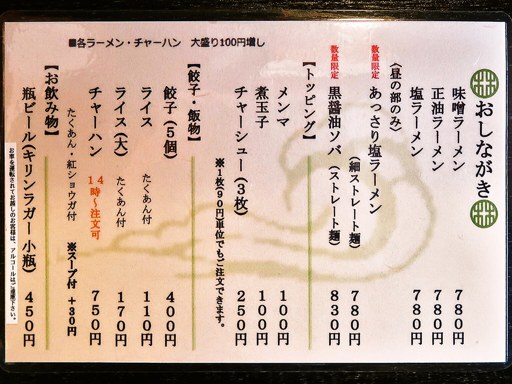 ■各ラーメン・チャーハン 大盛り100円増し
おしながき
味噌ラーメン 780円
正油ラーメン 780円
塩ラーメン 780円
〈昼の部のみ〉
数量限定 あっさり塩ラーメン（細ストレート麺） 780円
数量限定 黒醤油ソバ（ストレート麺） 830円
【トッピング】
メンマ 100円
煮玉子 100円
チャーシュー（3枚） 250円
※1枚(90円)単位でもご注文できます。
【餃子・飯物】
餃子（5個） 400円
ライス たくあん付 110円
ライス（大） たくあん付 170円
チャーハン 14時～注文可 750円
たくあん・紅ショウガ付 ※スープ付 +30円
【お飲み物】
瓶ビール（キリンラガー小瓶） 450円
お車を運転されてお越しのお客様は、アルコールはご遠慮下さい。